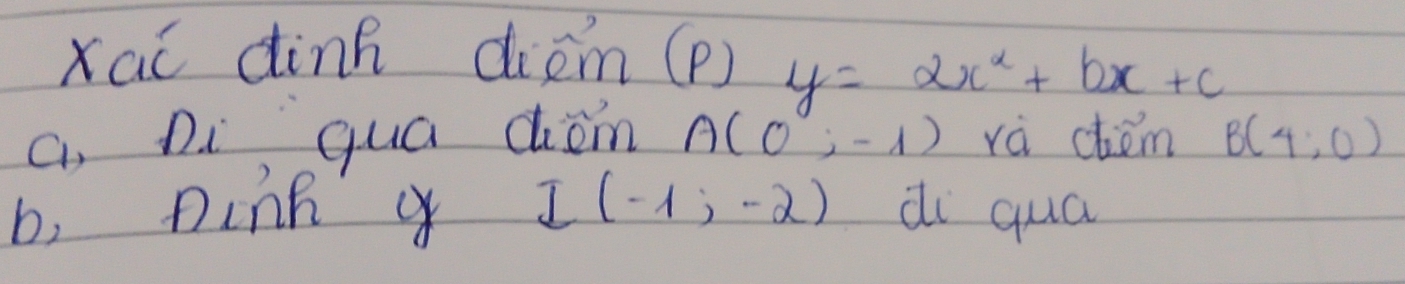 Xác định điểm (P) y = 2x² + bx + c
a, Đi qua điểm A(0 ; -1) và điểm B(4 ; 0)
b, Đỉnh I (-1 ; -2) đi qua